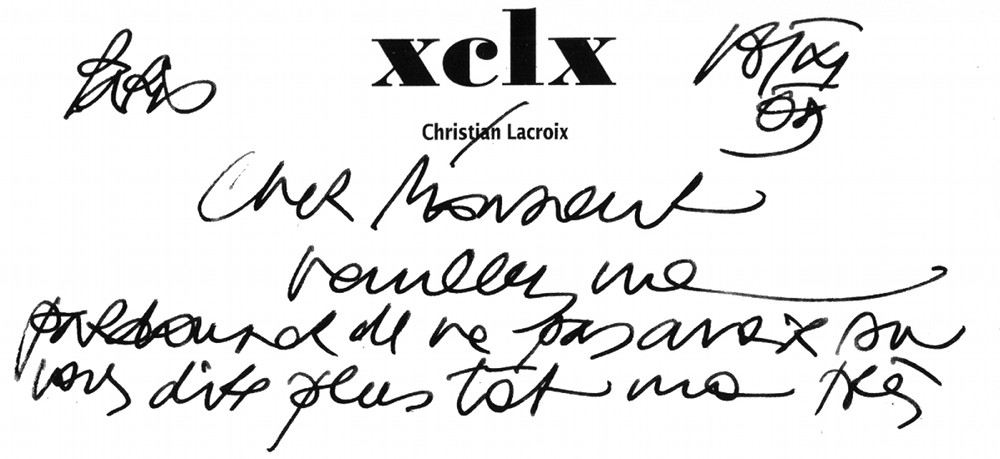 xclx
Christian Lacroix
Cher Monsieur
veuillez me
pardonner de ne pas avoir pu
vous dire plus tôt ma très